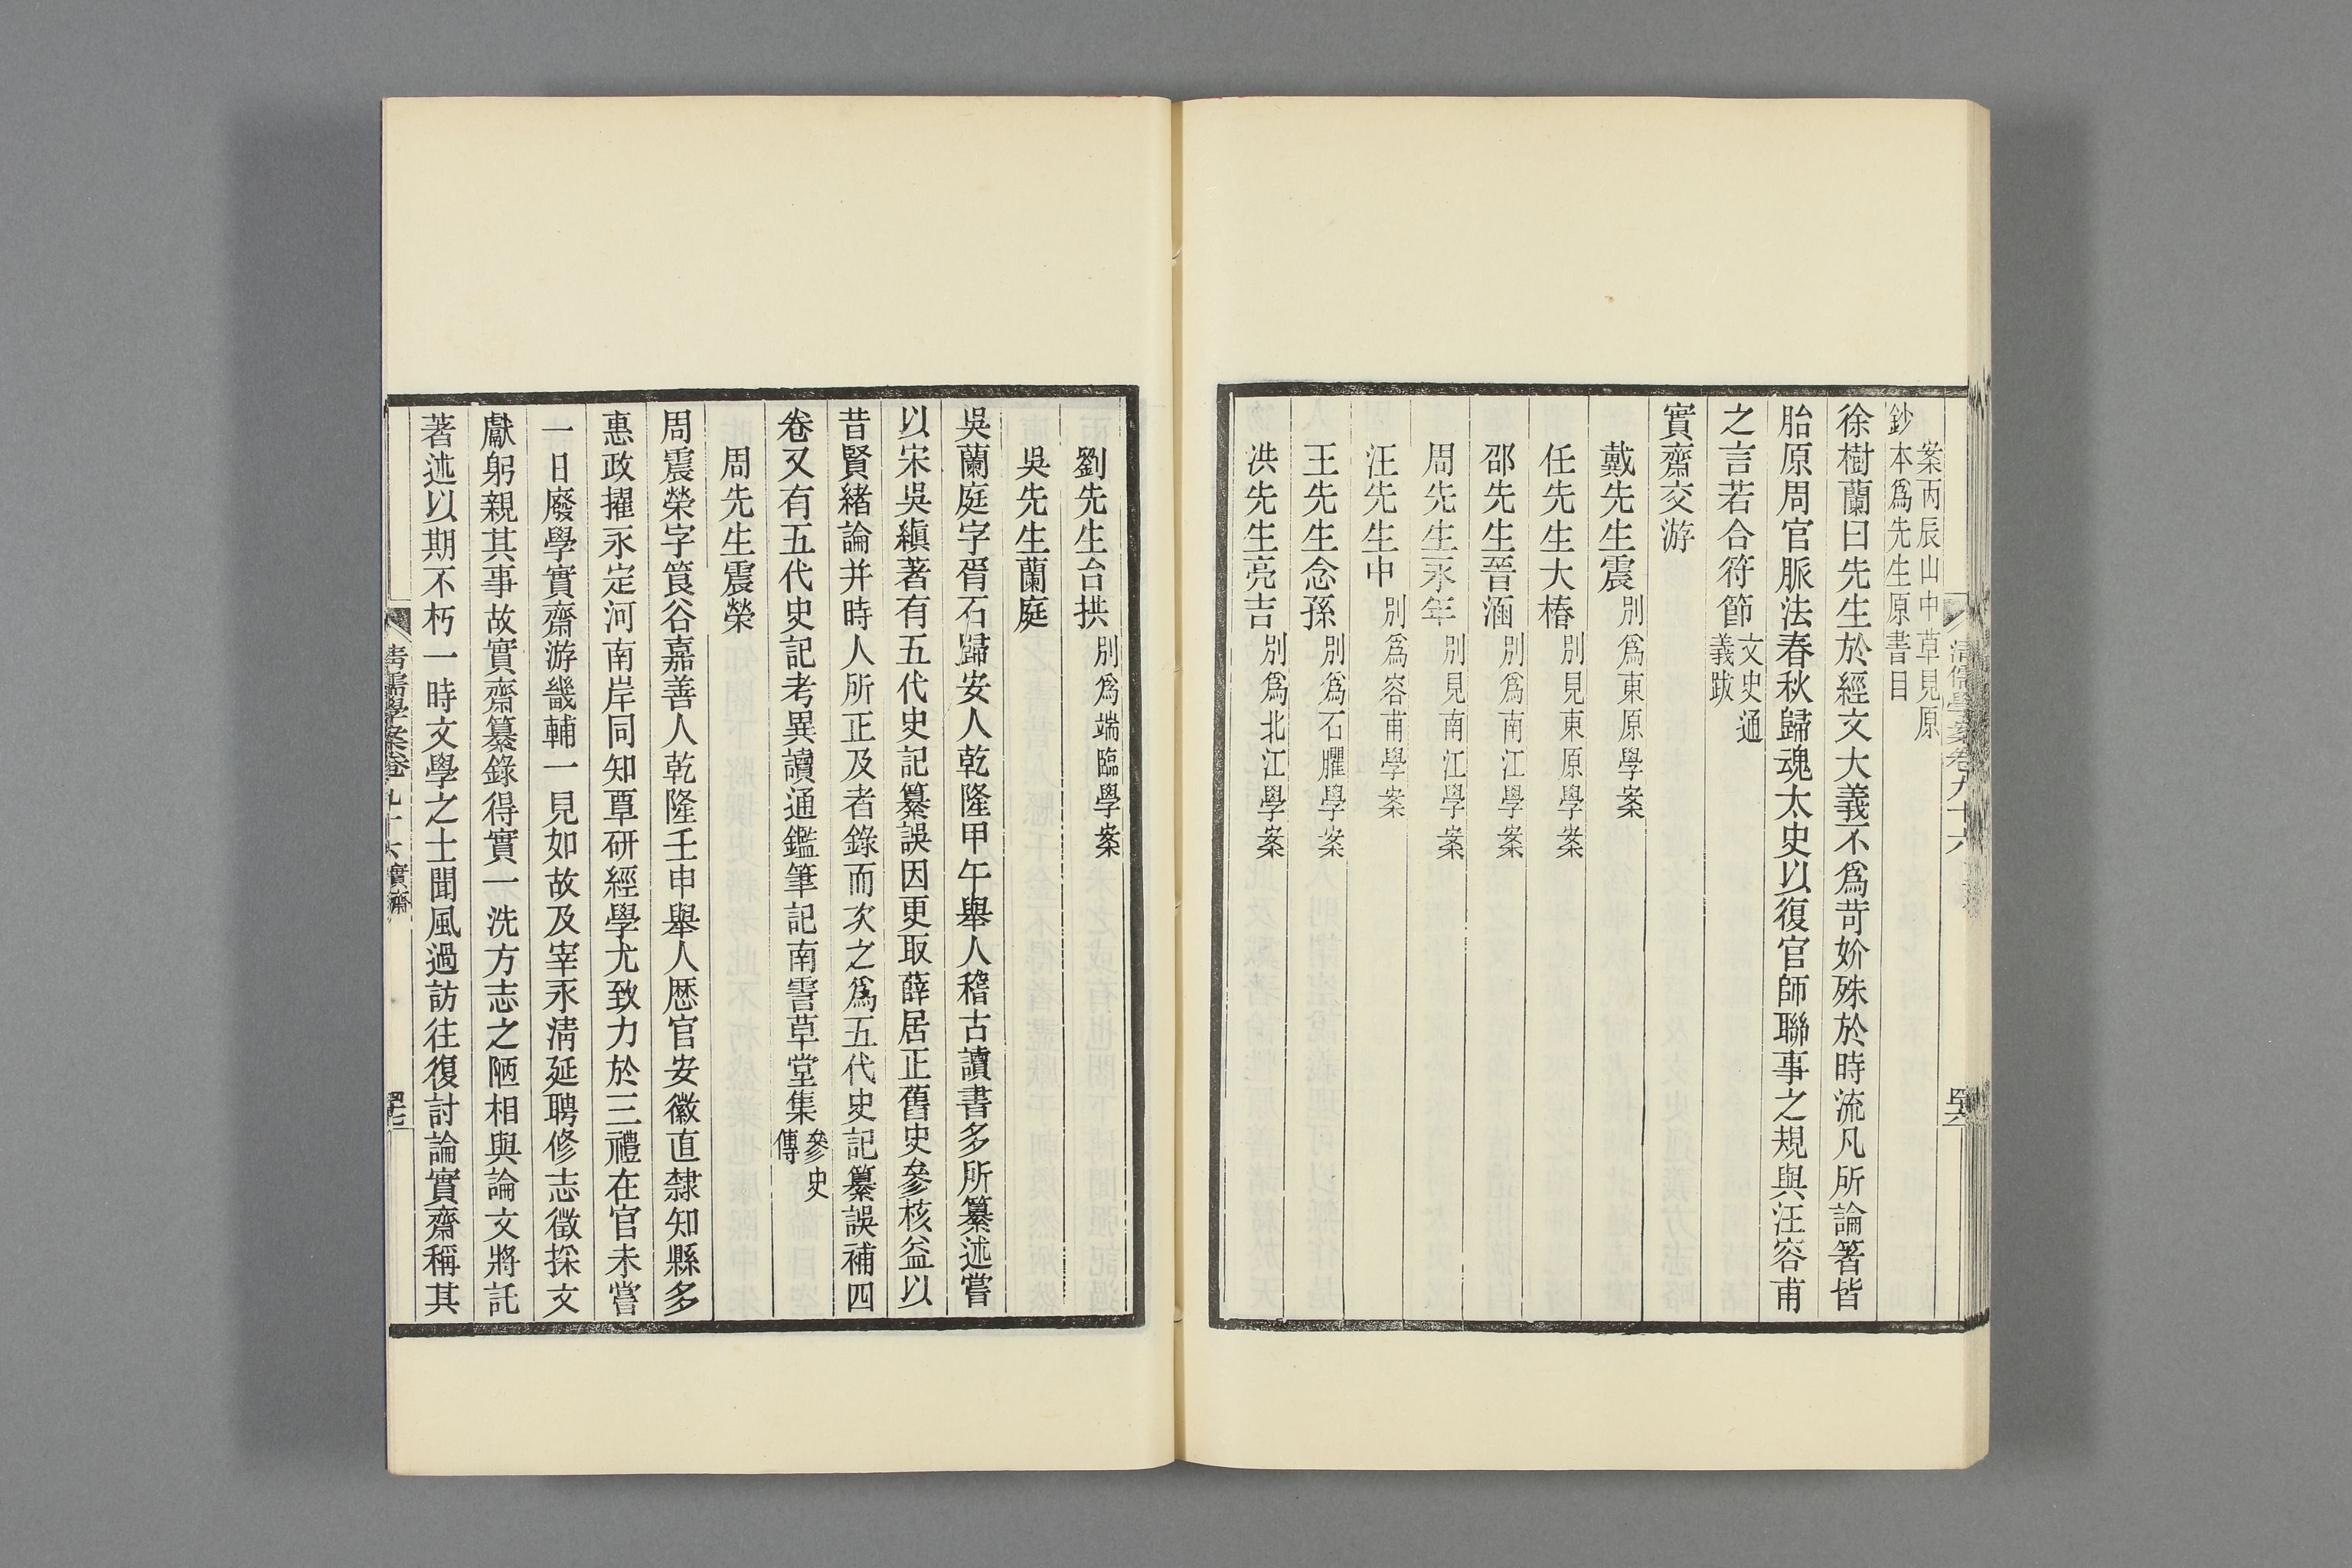 案丙辰山中草見原
鈔本爲先生原書目
徐樹蘭曰先生於經文大義不爲苛妎殊於時流凡所論箸皆
胎原周官脈法春秋歸魂太史以復官師聯事之規與汪容甫
之言若合符節文史通
義跋
實齋交游
戴先生震別爲東原學案
任先生大椿別見東原學案
邵先生晉涵別爲南江學案
周先生永年別見南江學案
汪先生中別爲容甫學案
王先生念孫別爲石臞學案
洪先生亮吉別爲北江學案
清儒學案卷九十六
四十六
劉先生台拱別爲端臨學案
吳先生蘭庭
吳蘭庭字胥石歸安人乾隆甲午舉人稽古讀書多所纂述嘗
以宋吳縝著有五代史記纂誤因更取薛居正舊史參核益以
昔賢緒論并時人所正及者錄而次之爲五代史記纂誤補四
卷又有五代史記考異讀通鑑筆記南霅草堂集參史
傳
周先生震榮
周震榮字筤谷嘉善人乾隆壬申舉人歷官安徽直隸知縣多
惠政擢永定河南岸同知覃研經學尤致力於三禮在官未嘗
一日廢學實齋游畿輔一見如故及宰永淸延聘修志徵採文
獻躬親其事故實齋纂錄得實一洗方志之陋相與論文將託
著述以期不朽一時文學之士聞風過訪往復討論實齋稱其
清儒學案卷九十六 實齋
四十七